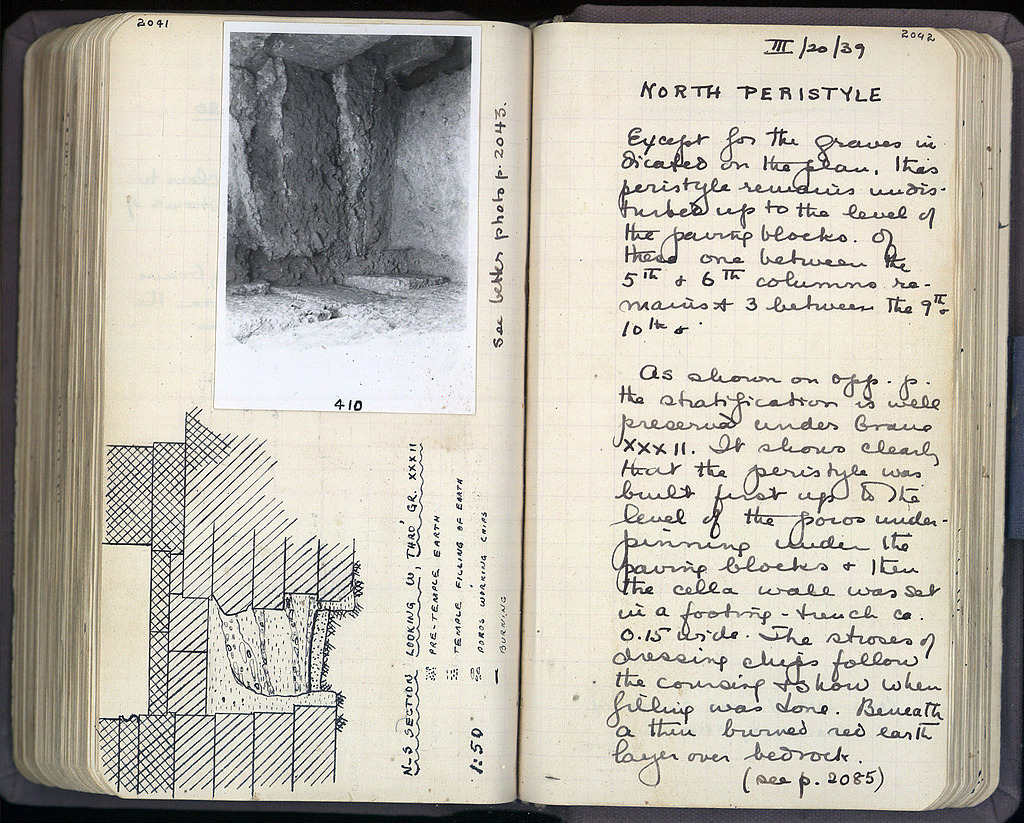 2041
410
See better photo p. 2043.
N-S SECTION LOOKING W, THRO' GR. XXXII
PRE-TEMPLE EARTH
TEMPLE FILLING OF EARTH
POROS WORKING CHIPS
BURNING
1:50
2042
III/20/39
NORTH PERISTYLE
Except for the graves in
dicated on the plan, this
peristyle remains undis-
turbed up to the level of
the paving blocks. Of
these one between the
5th & 6th columns re-
mains & 3 between the 9th &
10th &.
As shown on opp. p.
the stratification is well
preserved under Grave
XXXII. It shows clearly
that the peristyle was
built first up to the
level of the poros under-
pinning under the
paving blocks & then
the cella wall was set
in a footing-trench ca.
0.15 wide. The stroses of
dressing chips follow
the coursing & show when
filling was done. Beneath
a thin burned red earth
layer over bedrock.
(see p. 2085)